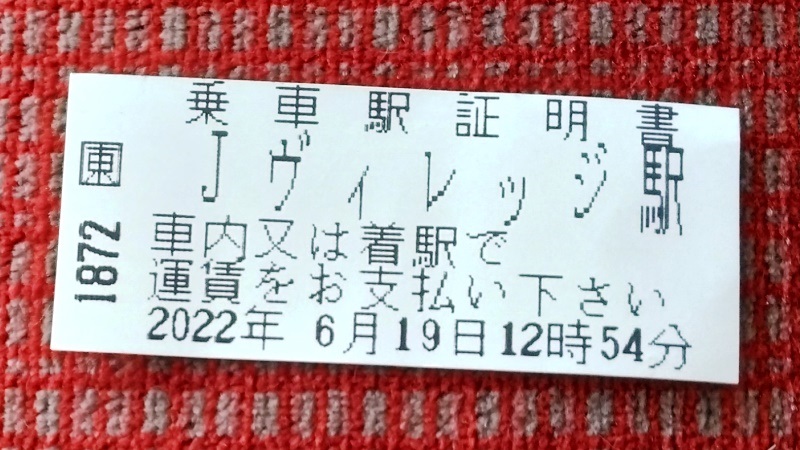 乗車駅証明書
東
Jヴィレッジ駅
1872
車内又は着駅で
運賃をお支払い下さい
2022年 6月19日12時54分